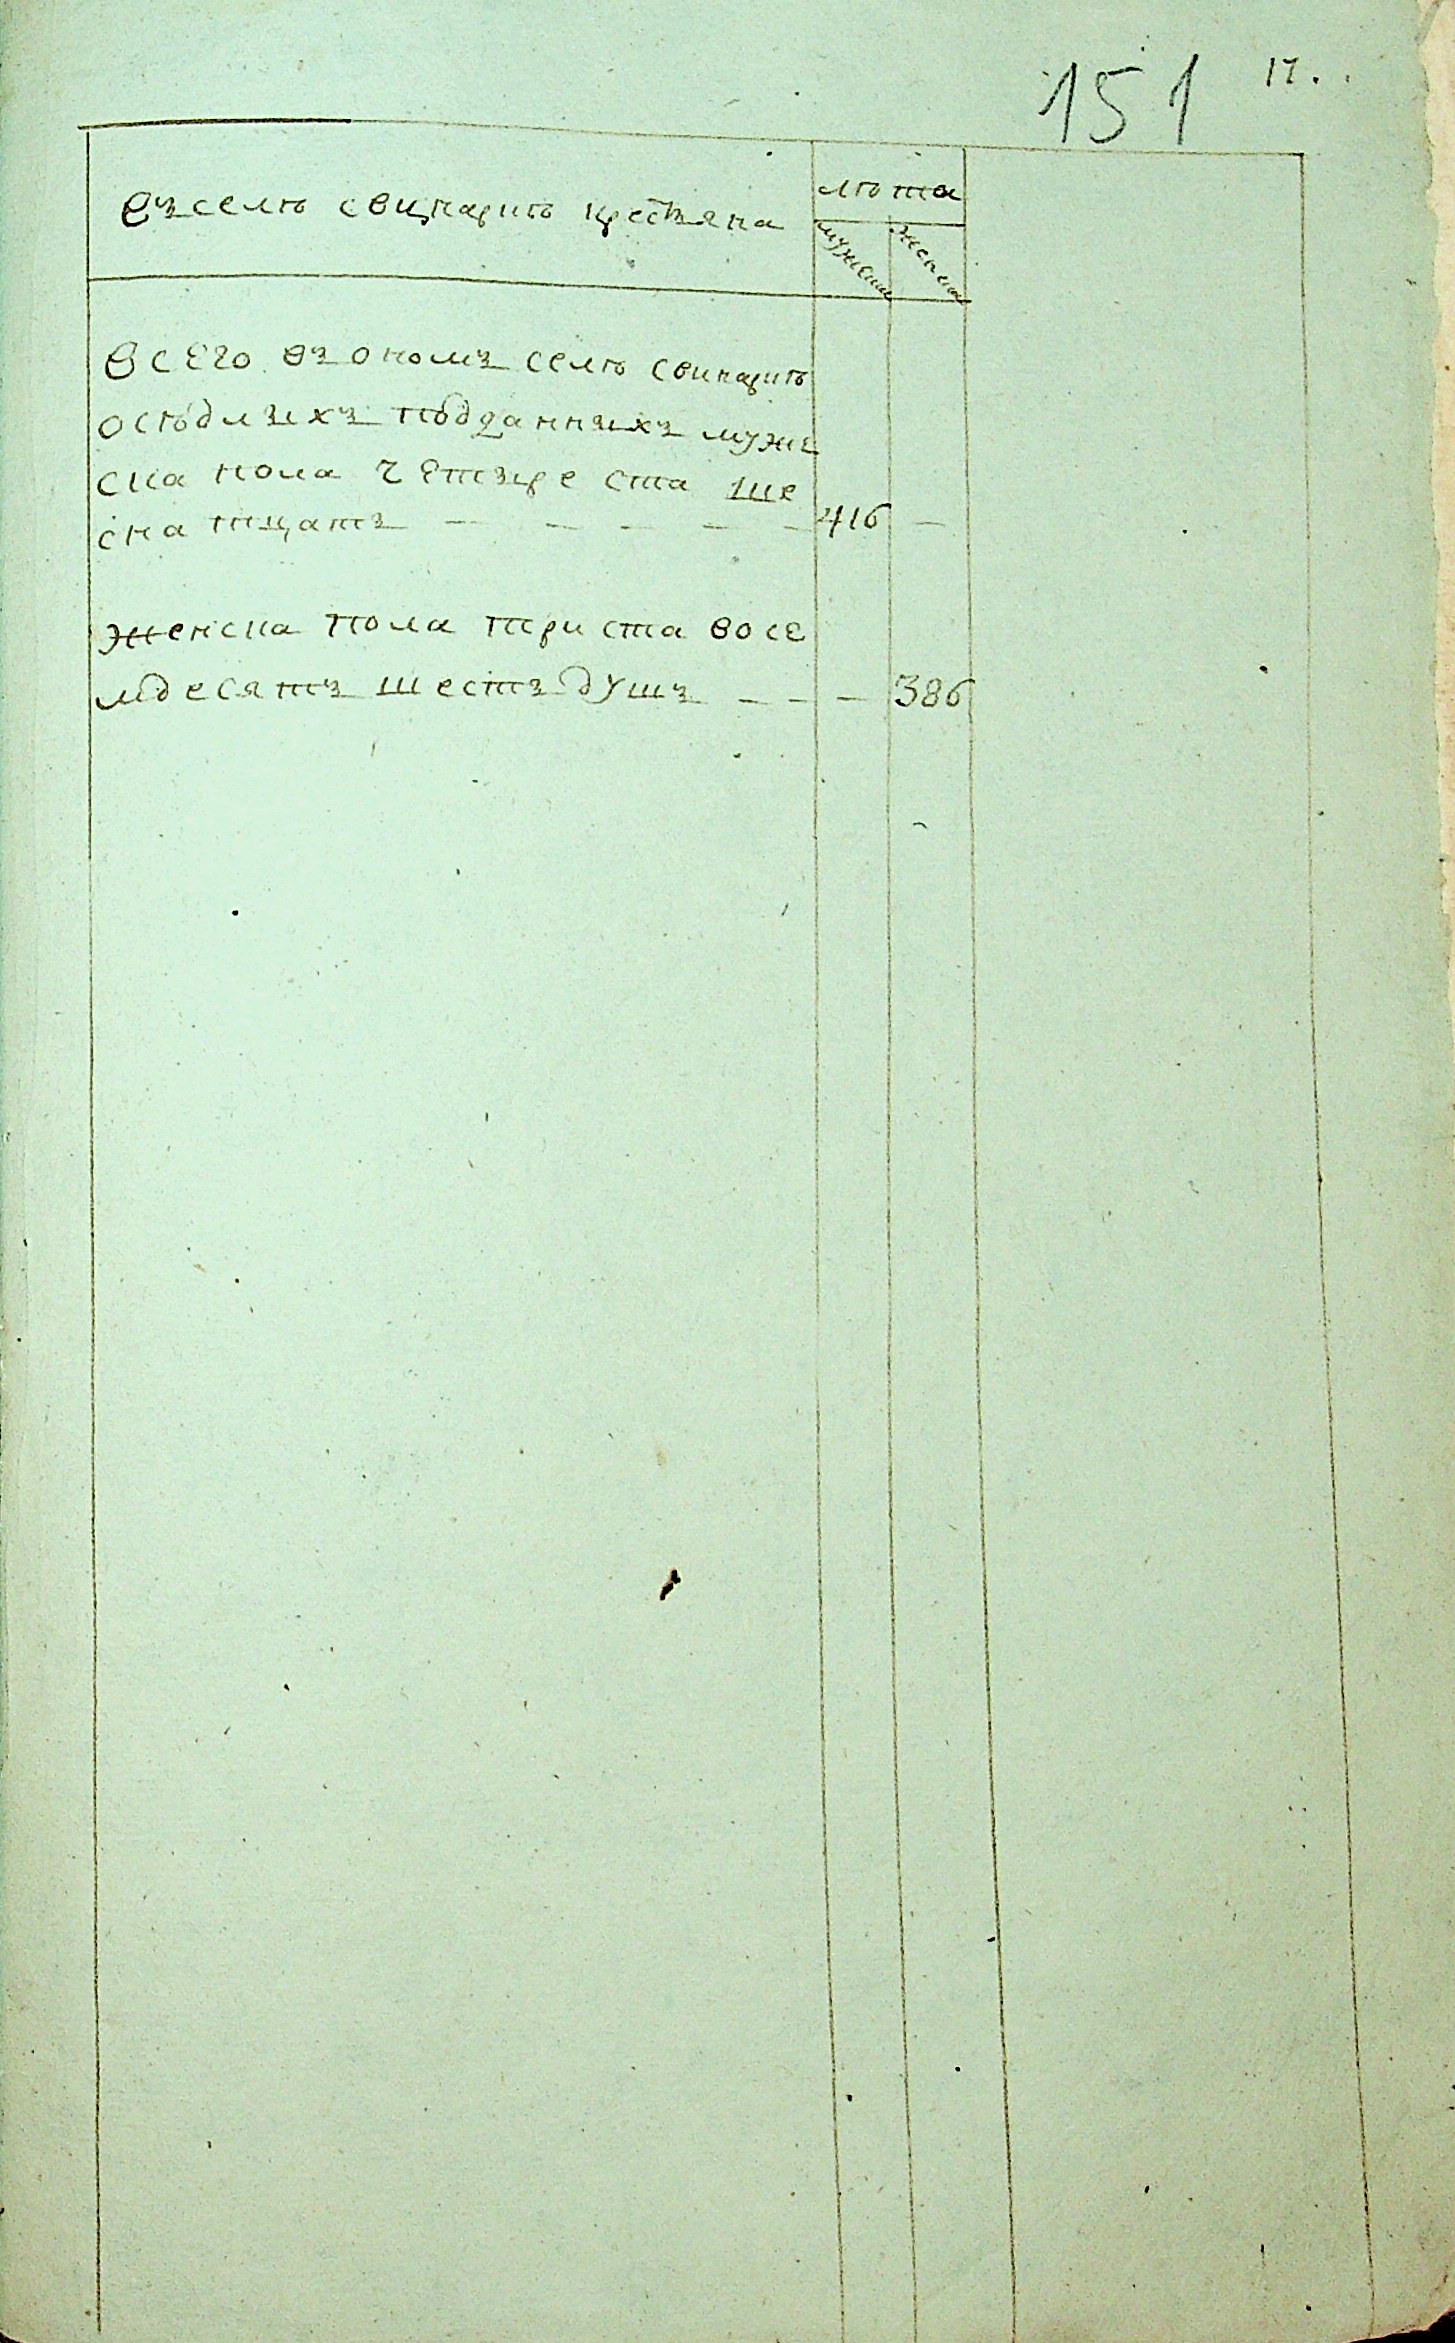 151 17.
Въ селѣ свинарнѣ крестяна
лѣта
мужеска
женска
Всего въ ономъ селѣ свинарнѣ
осѣдлыхъ подданныхъ муже
ска пола четыре ста ше
снатцать — — — — — 416 —
женска пола триста восе
мдесятъ шесть душъ — — — 386